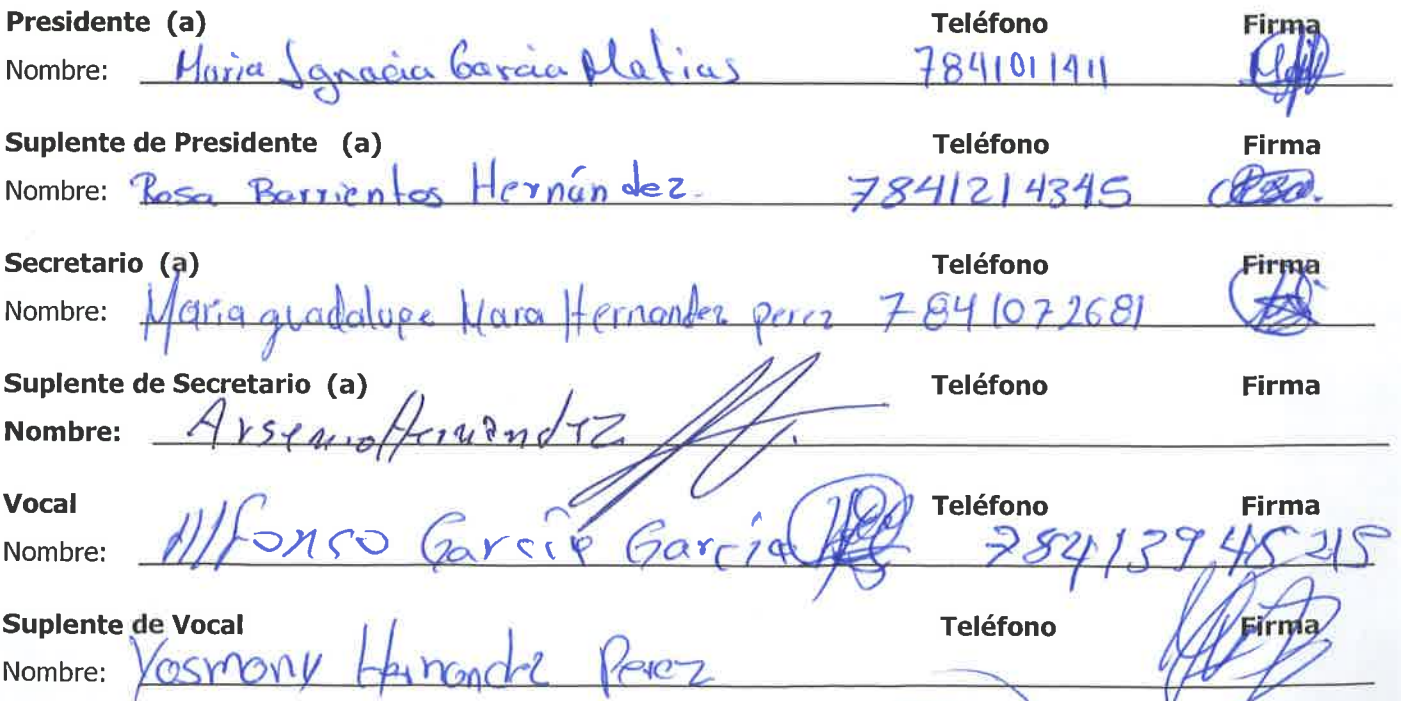 Presidente (a) Teléfono Firma
Nombre: Maria Ignacia Garcia Matias 7841011911
Suplente de Presidente (a) Teléfono Firma
Nombre: Rosa Barrientos Hernández. 7841214345
Secretario (a) Teléfono Firma
Nombre: Maria guadalupe Mara Hernandez perez 7841072681
Suplente de Secretario (a) Teléfono Firma
Nombre: Arsenio Hernandez
Vocal Teléfono Firma
Nombre: Alfonso Garcia Garcia
Suplente de Vocal Teléfono Firma
Nombre: Yosmony Hernandez Perez